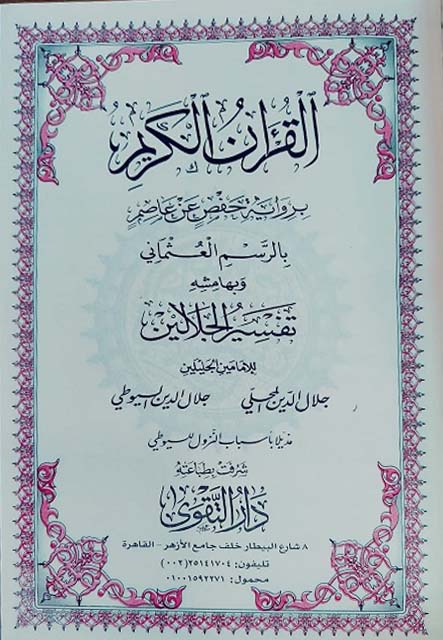 القرآن الكريم
برواية حفص عن عاصم
بالرسم العثماني
وبهامشه
تفسير الجلالين
للإمامين الجليلين
جلال الدين المحلي جلال الدين السيوطي
مذيلا بأسباب النزول للسيوطي
شرفت بطباعته
دار التقوى
٨ شارع البيطار خلف جامع الأزهر - القاهرة
تليفون: ٢٥١٤١٧٠٤(٠٠٢)
محمول: ٠١٠٠١٥٩٢٢٧١